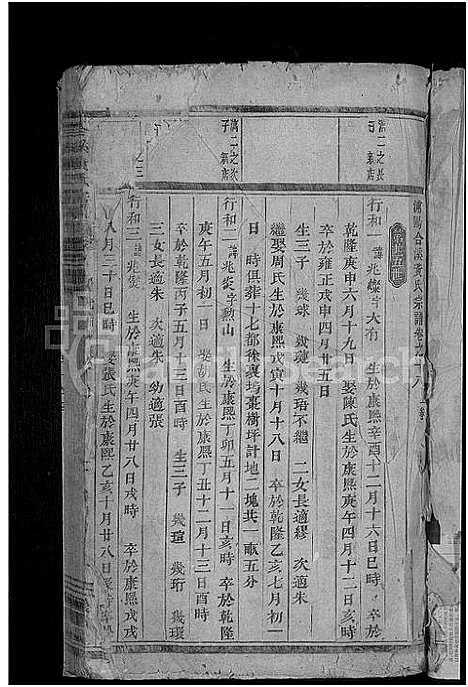 浦陽合溪黃氏宗譜卷之十六
行和一 諱兆燦字大有 生於康熙辛酉十二月十六日巳時 卒於
乾隆庚申六月十九日 娶陳氏生於康熙庚午四月十二日亥時
卒於雍正戊申四月廿五日
生三子 幾球 幾璁 幾珸不繼 二女長適繆 次適朱
繼娶周氏生於康熙戊寅十月十八日 卒於乾隆乙亥七月初一
日 時俱葬十七都徐裏塢棗樹坪計地二塊共一畝五分
滿二之長子新店
行和二 諱兆楚字勳山 生於康熙丁卯五月十一日亥時 卒於乾隆
庚午五月初一日 娶胡氏生於康熙丁丑十二月十三日酉時
卒於乾隆丙子五月十三日酉時 生三子 幾瑄 幾珩 幾環
三女長適朱 次適朱 幼適張
滿二之次子新店
行和三 諱兆 生於康熙庚午四月廿八日戌時 卒於康熙戊戌
八月三十日巳時 娶張氏生於康熙乙亥十月廿八日
之三